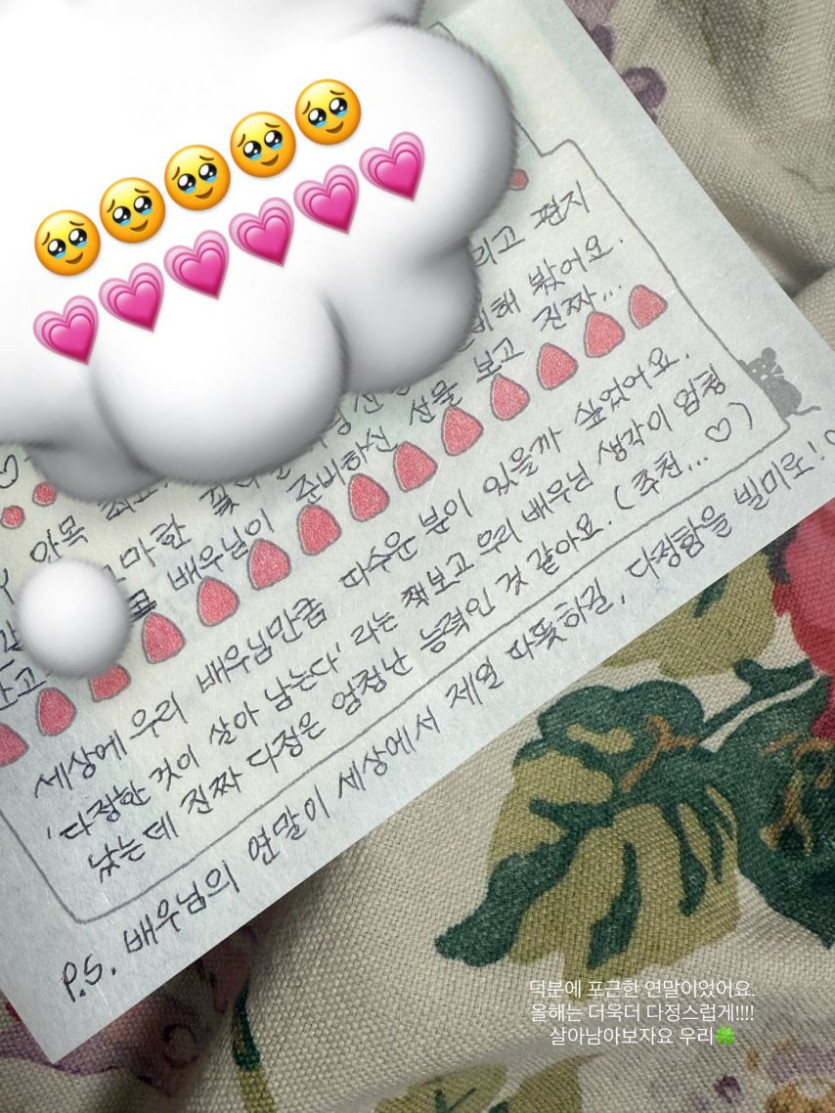 리고 편지
비해 봤어요.
배우님이 준비하신 선물 보고 진짜...
세상에 우리 배우님만큼 따수운 분이 있을까 싶었어요.
'다정한 것이 살아 남는다' 라는 책보고 우리 배우님 생각이 엄청
났는데 진짜 다정은 엄청난 능력인 것 같아요. (추천...♡)
P.S. 배우님의 연말이 세상에서 제일 따뜻하길, 다정함을 빌미로!♡
덕분에 포근한 연말이었어요.
올해는 더욱더 다정스럽게!!!!
살아남아보자요 우리🍀